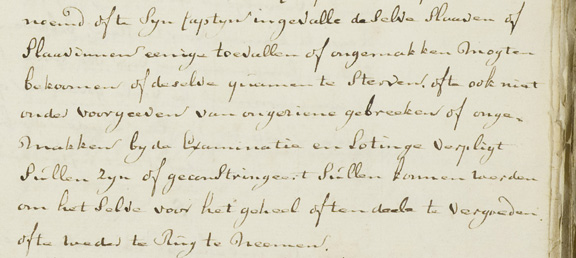 noemd ofte Syn Captyn ingevalle deselve Slaaven of
Slaavinnen eenige toevallen of ongemakken Mogten
bekoomen of deselve quamen te Sterven, ofte ook niet
onder voorgeeven van ongeziene gebreeken of onge-
makken by de Examinatie en Lotinge verpligt
Sullen zyn of geconstringeert Sullen konnen werden
om het Selve voor het geheel often deele te Vergoeden,
ofte weder te Rug te Neemen.